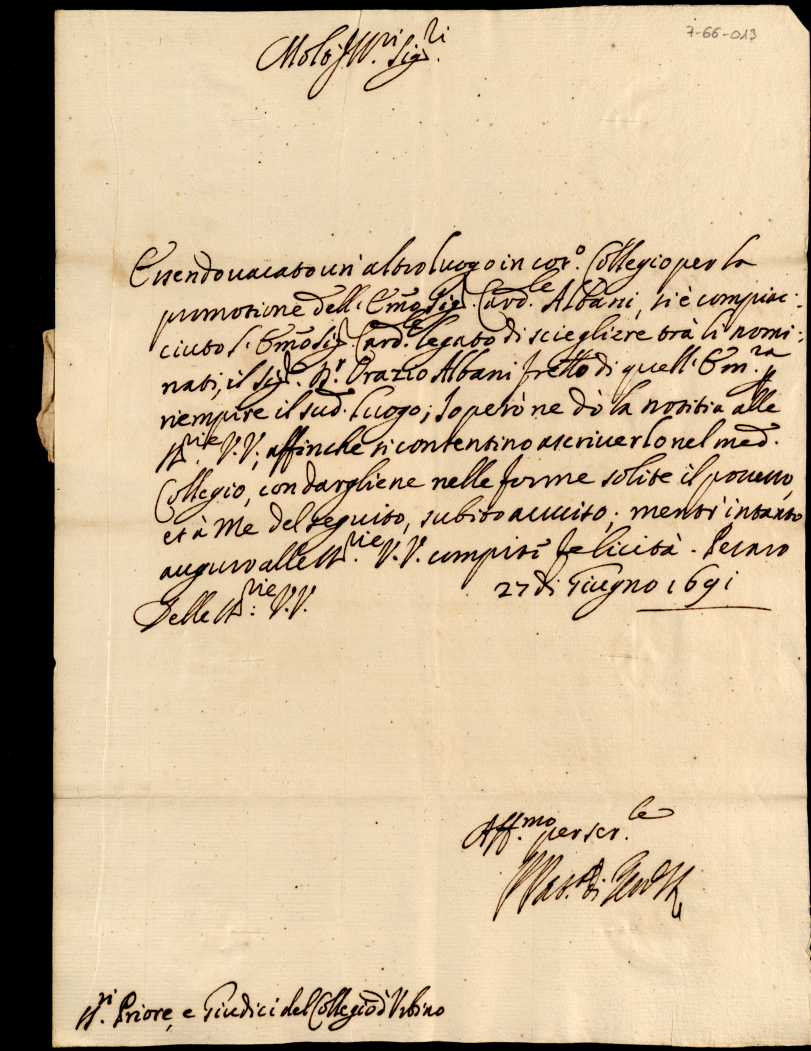 7-66-013
Molto Ill.ri Sig.ri
Essendo vacato un'altro luogo in cot.o Collegio per la
promotione dell'Em̃o Sig.r Card.le Albani, si è compiac:
ciuto l'Em̃o Sig.r Card.le legato di sciegliere trà li nomi:
nati, il Sig.r D.r Orazio Albani frello di quell'Em.za p
riempire il sud.o luogo; Io però ne dò la notitia alle
Ill.rie V.V., affinche si contentino ascriuerlo nel med.
Collegio, con dargliene nelle forme solite il possesso,
et à Me del seguito, subito auuiso; mentr'intanto
auguro alle Ill.rie V.V. compite felicità. Pesaro
27 di Giugno 1691
Delle Ill.rie V.V.
Aff.mo per ser.le
Ill.ri Priore, e Giudici del Collegio d'Vrbino